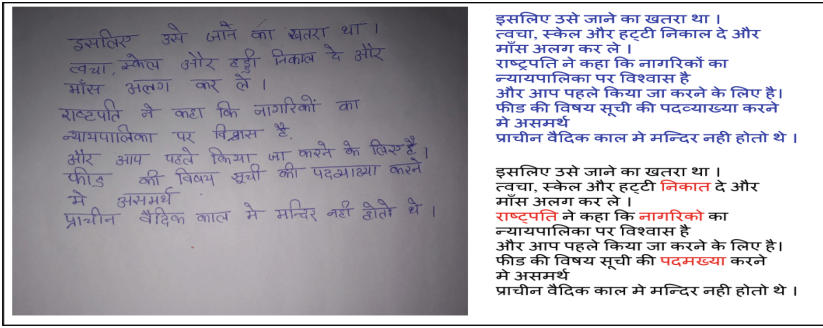 इसलिए उसे जाने का खतरा था ।
त्वचा, स्केल और हड्डी निकाल दे और
माँस अलग कर ले ।
राष्टपति ने कहा कि नागरिकों का
न्यायपालिका पर विश्वास है.
और आप पहले किया जा करने के लिए है ।
फीड की विषय सूची की पदव्याख्या करने
मे असमर्थ
प्राचीन वैदिक काल मे मन्दिर नही होतो थे ।
इसलिए उसे जाने का खतरा था ।
त्वचा, स्केल और हट्टी निकाल दे और
माँस अलग कर ले ।
राष्ट्रपति ने कहा कि नागरिकों का
न्यायपालिका पर विश्वास है
और आप पहले किया जा करने के लिए है।
फीड की विषय सूची की पदव्याख्या करने
मे असमर्थ
प्राचीन वैदिक काल मे मन्दिर नही होतो थे ।
इसलिए उसे जाने का खतरा था ।
त्वचा, स्केल और हट्टी निकात दे और
माँस अलग कर ले ।
राष्ट्पति ने कहा कि नागरिको का
न्यायपालिका पर विश्वास है
और आप पहले किया जा करने के लिए है।
फीड की विषय सूची की पदमख्या करने
मे असमर्थ
प्राचीन वैदिक काल मे मन्दिर नही होतो थे ।